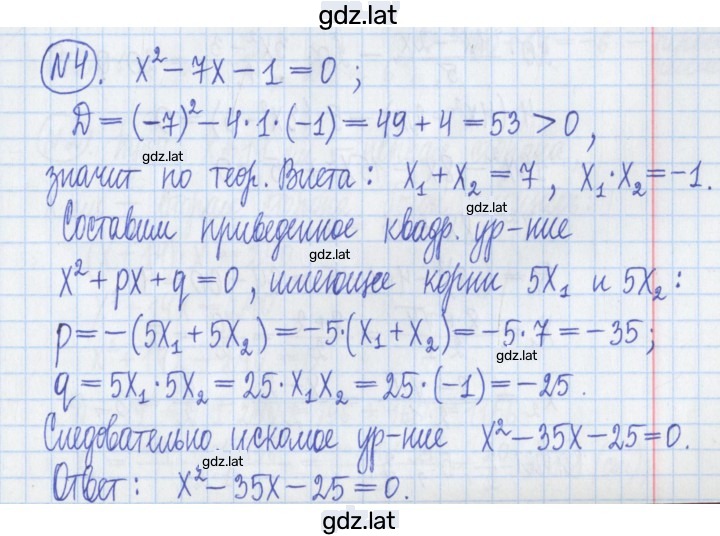 gdz.lat
№4. x² – 7x – 1 = 0 ;
Д = (–7)² – 4·1·(–1) = 49 + 4 = 53 > 0,
gdz.lat
значит по теор. Виета: x₁ + x₂ = 7, x₁·x₂ = –1.
gdz.lat
Составим приведенное квадр. ур-ние
gdz.lat
x² + px + q = 0, имеющее корни 5x₁ и 5x₂:
p = –(5x₁ + 5x₂) = –5·(x₁ + x₂) = –5·7 = –35;
gdz.lat
q = 5x₁·5x₂ = 25·x₁x₂ = 25·(–1) = –25.
Следовательно искомое ур-ние x² – 35x – 25 = 0.
gdz.lat
Ответ: x² – 35x – 25 = 0.
gdz.lat